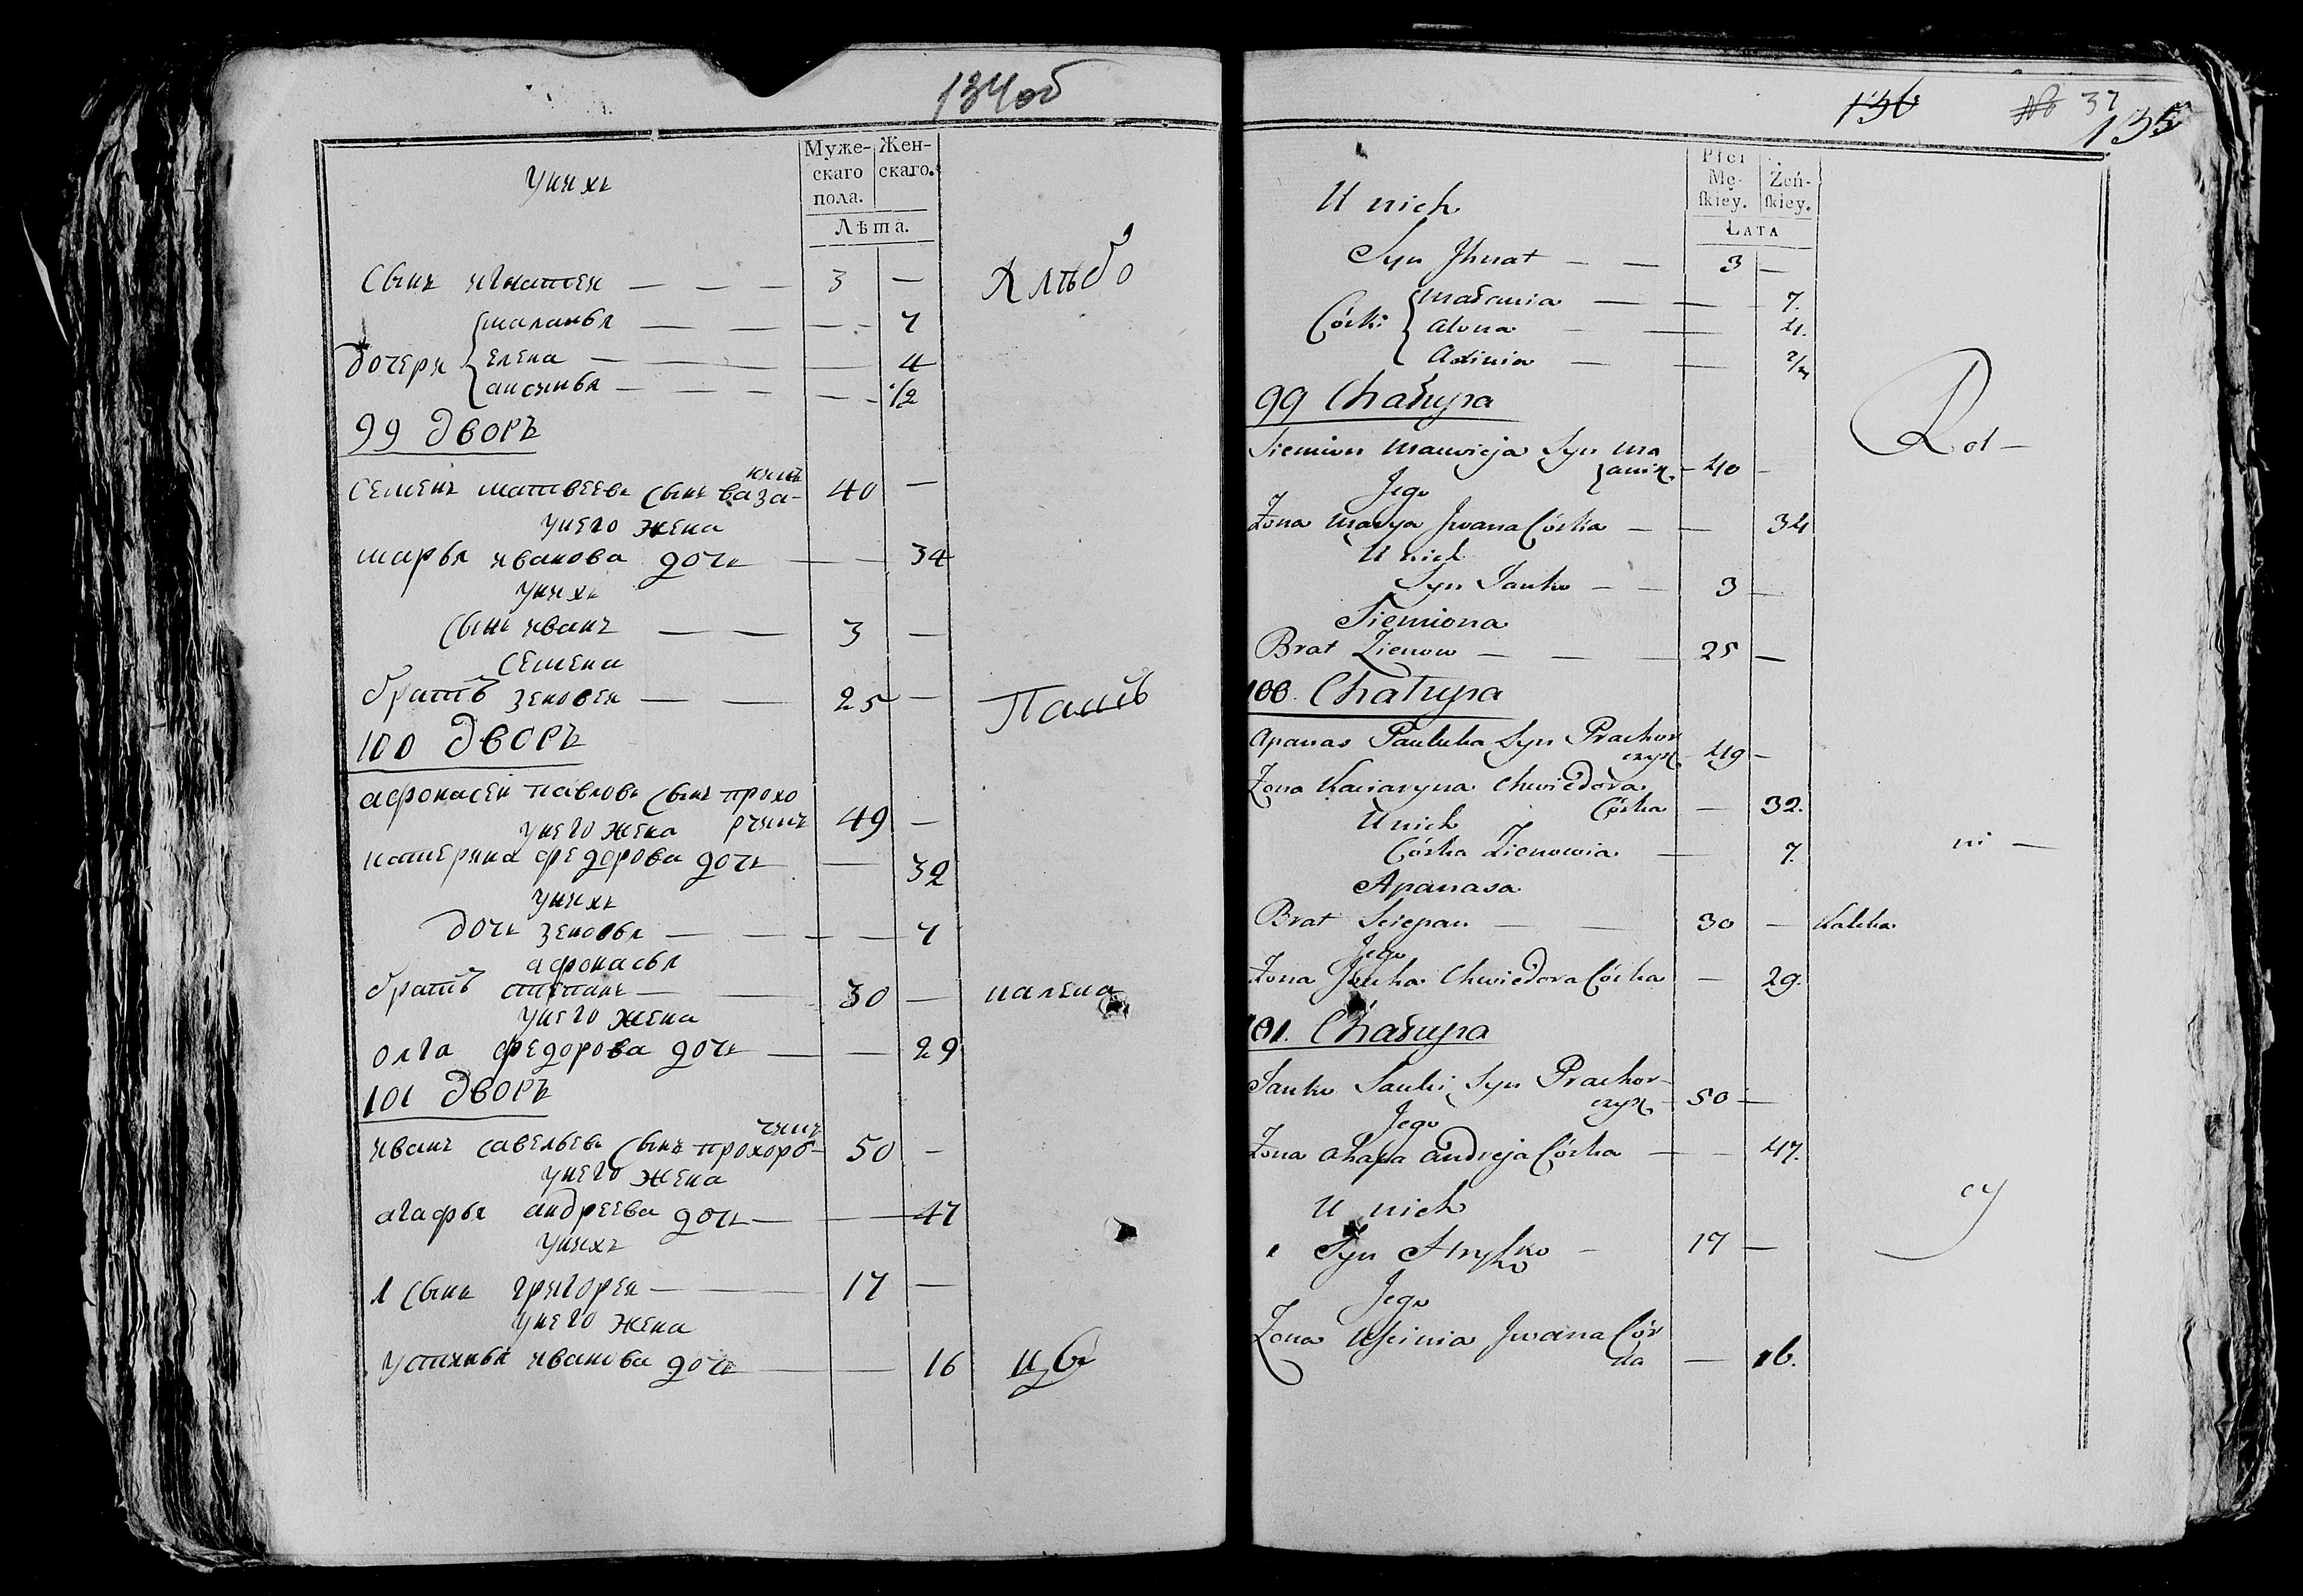 134об
Муже-
скаго
пола.
Жен-
скаго.
Лѣта.
Унихъ
Сынъ игнатеи — — — 3 —
маланья — — — 7
дочери елена — — — 4
ансинья — — — 1/2
99 дворъ
Семенъ матвеевъ сынъ
40 —
унего жена
марья иванова дочь — — 34
унихъ
сынъ иванъ — — 3 —
семена
братъ зеновеи — — 25 —
100 дворъ
афонасеи павловъ сынъ прохо
рчикъ 49 —
унего жена
катерина федорова дочь — 32
унихъ
дочь зеновья — — — 7
афонасья
братъ степанъ — — 30 — калека
унего жена
олга федорова дочь — — 29
101 дворъ
иванъ савельевъ сынъ прохорв-
чикъ 50 —
унего жена
агафья андреева дочь — — 47
унихъ
1 сынъ григореи — — 17 —
унего жена
устинья иванова дочь — — 16
136 № 37
135
Płci
Mę-
skiey.
Żeń-
skiey.
Lata
U nich
Syn Jhnat — — 3 —
Małania — — 7.
Córki Alona — 4.
Axinia — —
99 Chałupa
Siemion Maciwieja Syn
— 40 —
Jego
Żona Marya Jwana Córka — — 34
U nich
Syn Janko — — 3 —
Siemiona
Brat Zienow — — — 25 —
100. Chałupa
Apanas Pauluka Syn Prachor
czyk — 49 —
Żona Kaciaryna Chwiedora
Córka — 32.
U nich
Córka Zienowia — 7. ni —
Apanasa
Brat Sciepan — — 30 — Kaleka
Jego
Żona Chwiedora Córka — 29.
101. Chałupa
Janko Sauki Syn Prachor-
czyk — 50 —
Jego
Żona Ahapa Andreja Córka — — 47.
U nich
1 Syn Hryszko — 17 —
Jego
Żona Uscinia Jwana Cór
ka — 16.